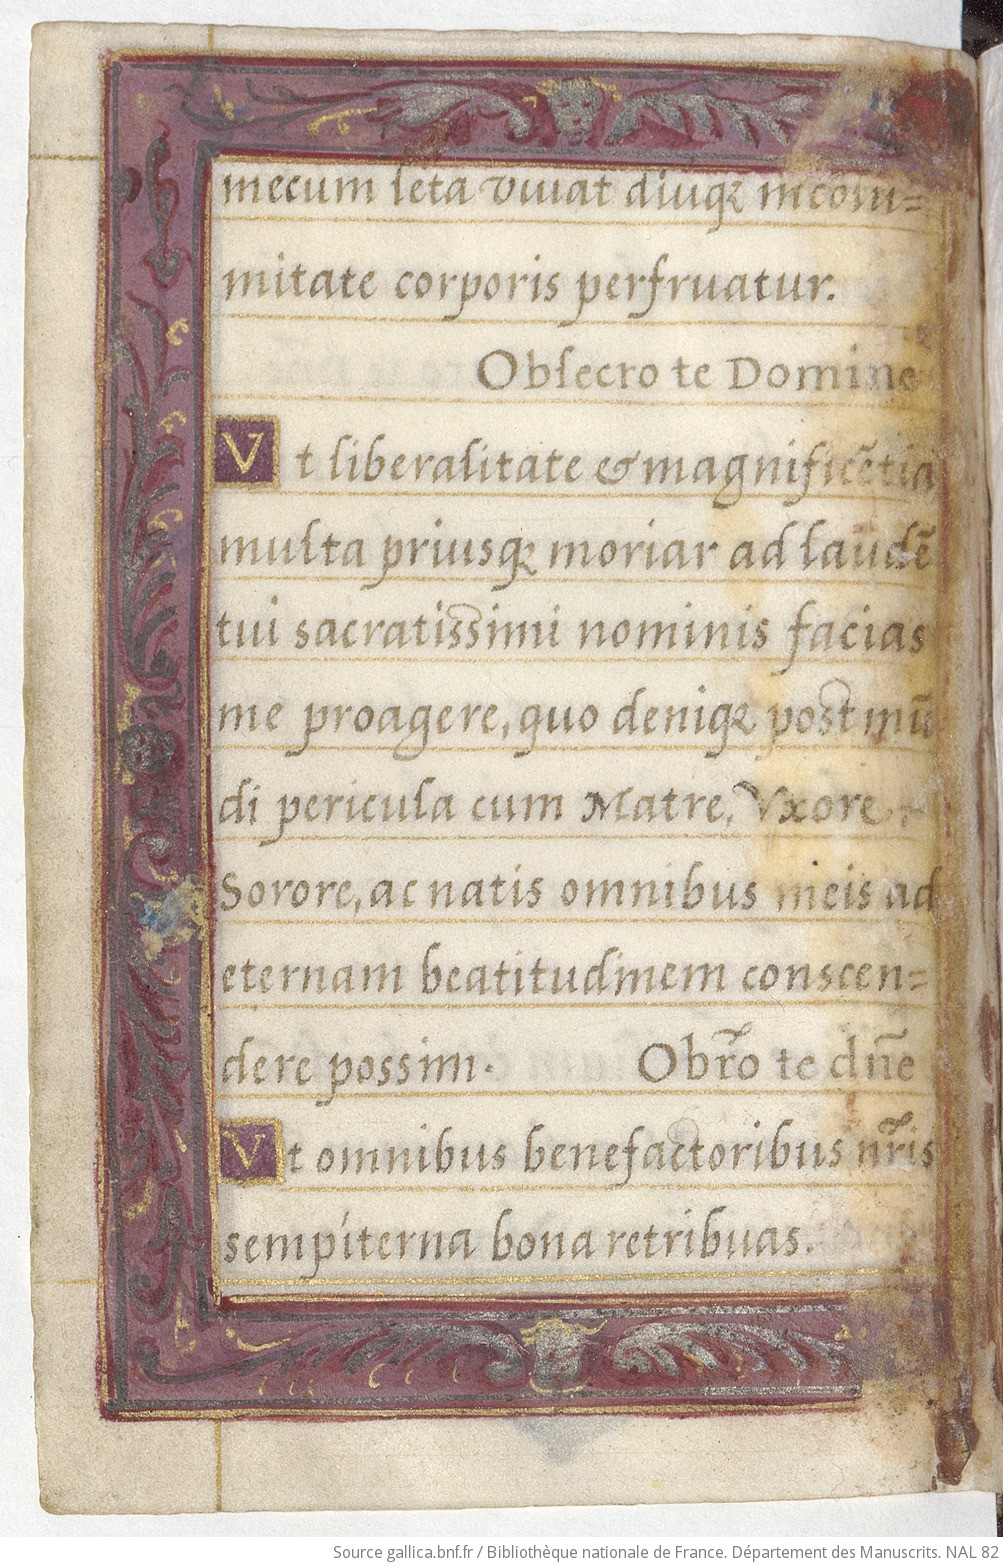 mecum leta viuat diuqꝫ incolu=
mitate corporis perfruatur.
Obsecro te Domine
Vt liberalitate & magnificẽtia
multa priusqꝫ moriar ad laudẽ
tui sacratissimi nominis facias
me proagere, quo deniqꝫ post mũ
di pericula cum Matre, Vxore,
Sorore, ac natis omnibus meis ad
eternam beatitudinem conscen=
dere possim. Obr̃o te dñe
Vt omnibus benefactoribus nr̃is
sempiterna bona retribuas.
Source gallica.bnf.fr / Bibliothèque nationale de France. Département des Manuscrits. NAL 82